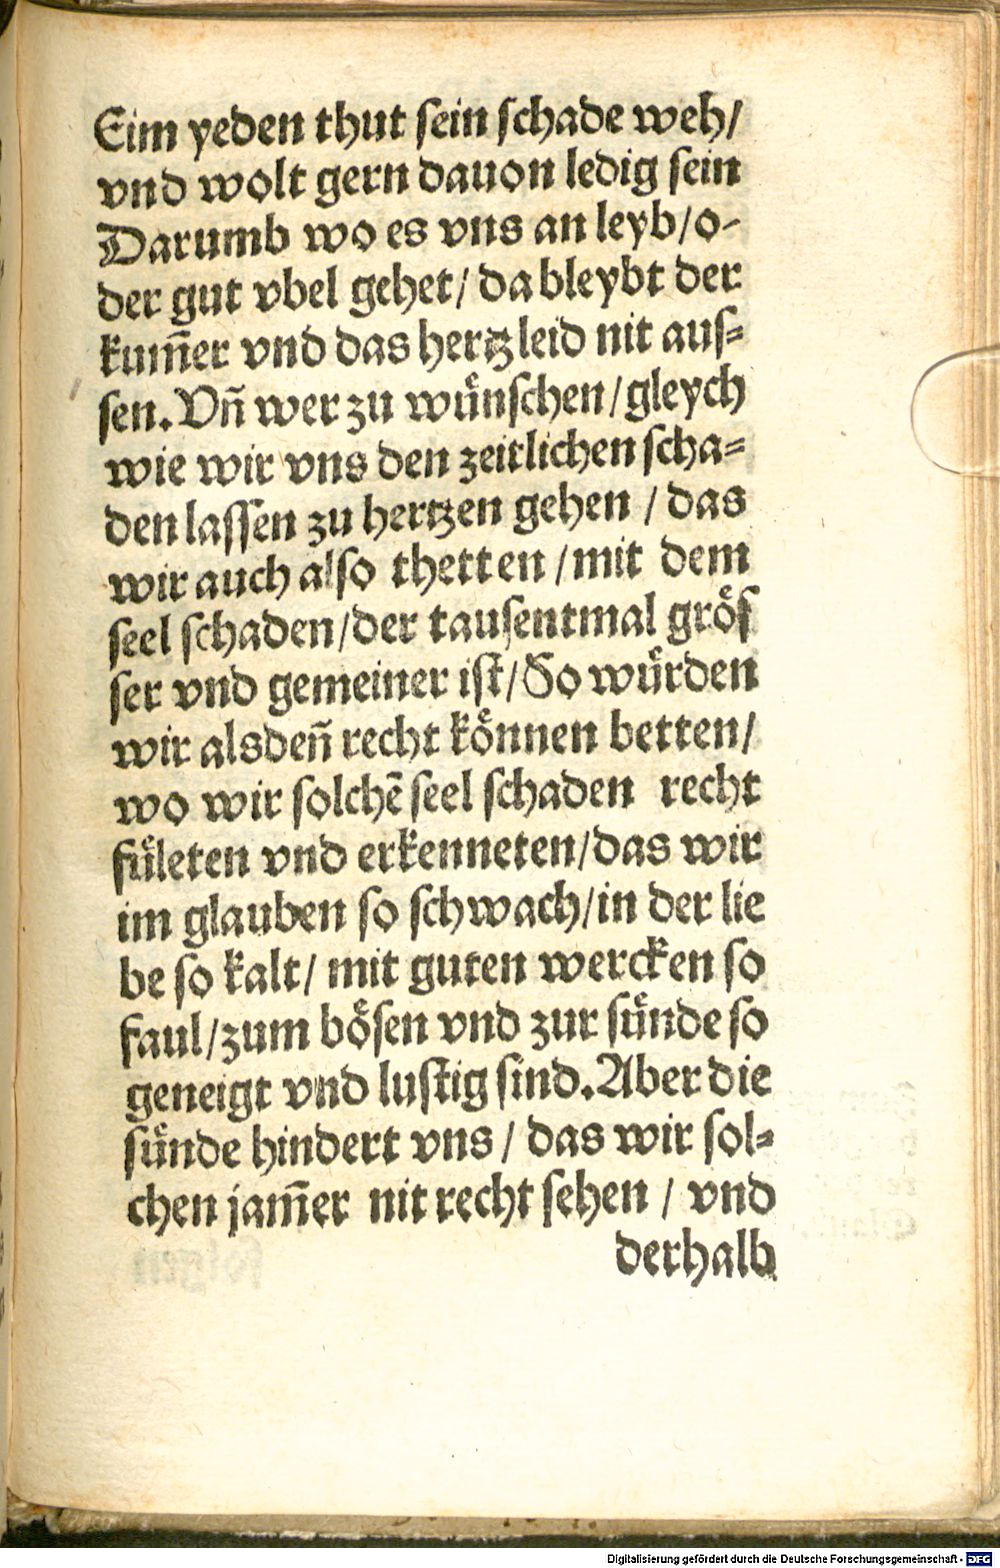 Eim yeden thut sein schade weh/
vnd wolt gern dauon ledig sein
Darumb wo es vns an leyb/o-
der gut vbel gehet/ da bleybt der
kum̃er vnd das hertzleid nit auſ-
sen. Vñ wer zu wuͤnschen/gleych
wie wir vns den zeitlichen scha-
den lassen zu hertzen gehen / das
wir auch also thetten /mit dem
seel schaden/der tausentmal groͤs
ser vnd gemeiner ist/ So wuͤrden
wir alsdeñ recht koͤnnen betten/
wo wir solchẽ seel schaden recht
fuͤleten vnd erkenneten/das wir
im glauben so schwach/in der lie
be so kalt/ mit guten wercken so
faul/zum boͤsen vnd zur suͤnde so
geneigt vnd lustig sind. Aber die
suͤnde hindert vns / das wir sol-
chen jam̃er nit recht sehen / vnd
derhalb
Digitalisierung gefördert durch die Deutsche Forschungsgemeinschaft - DFG